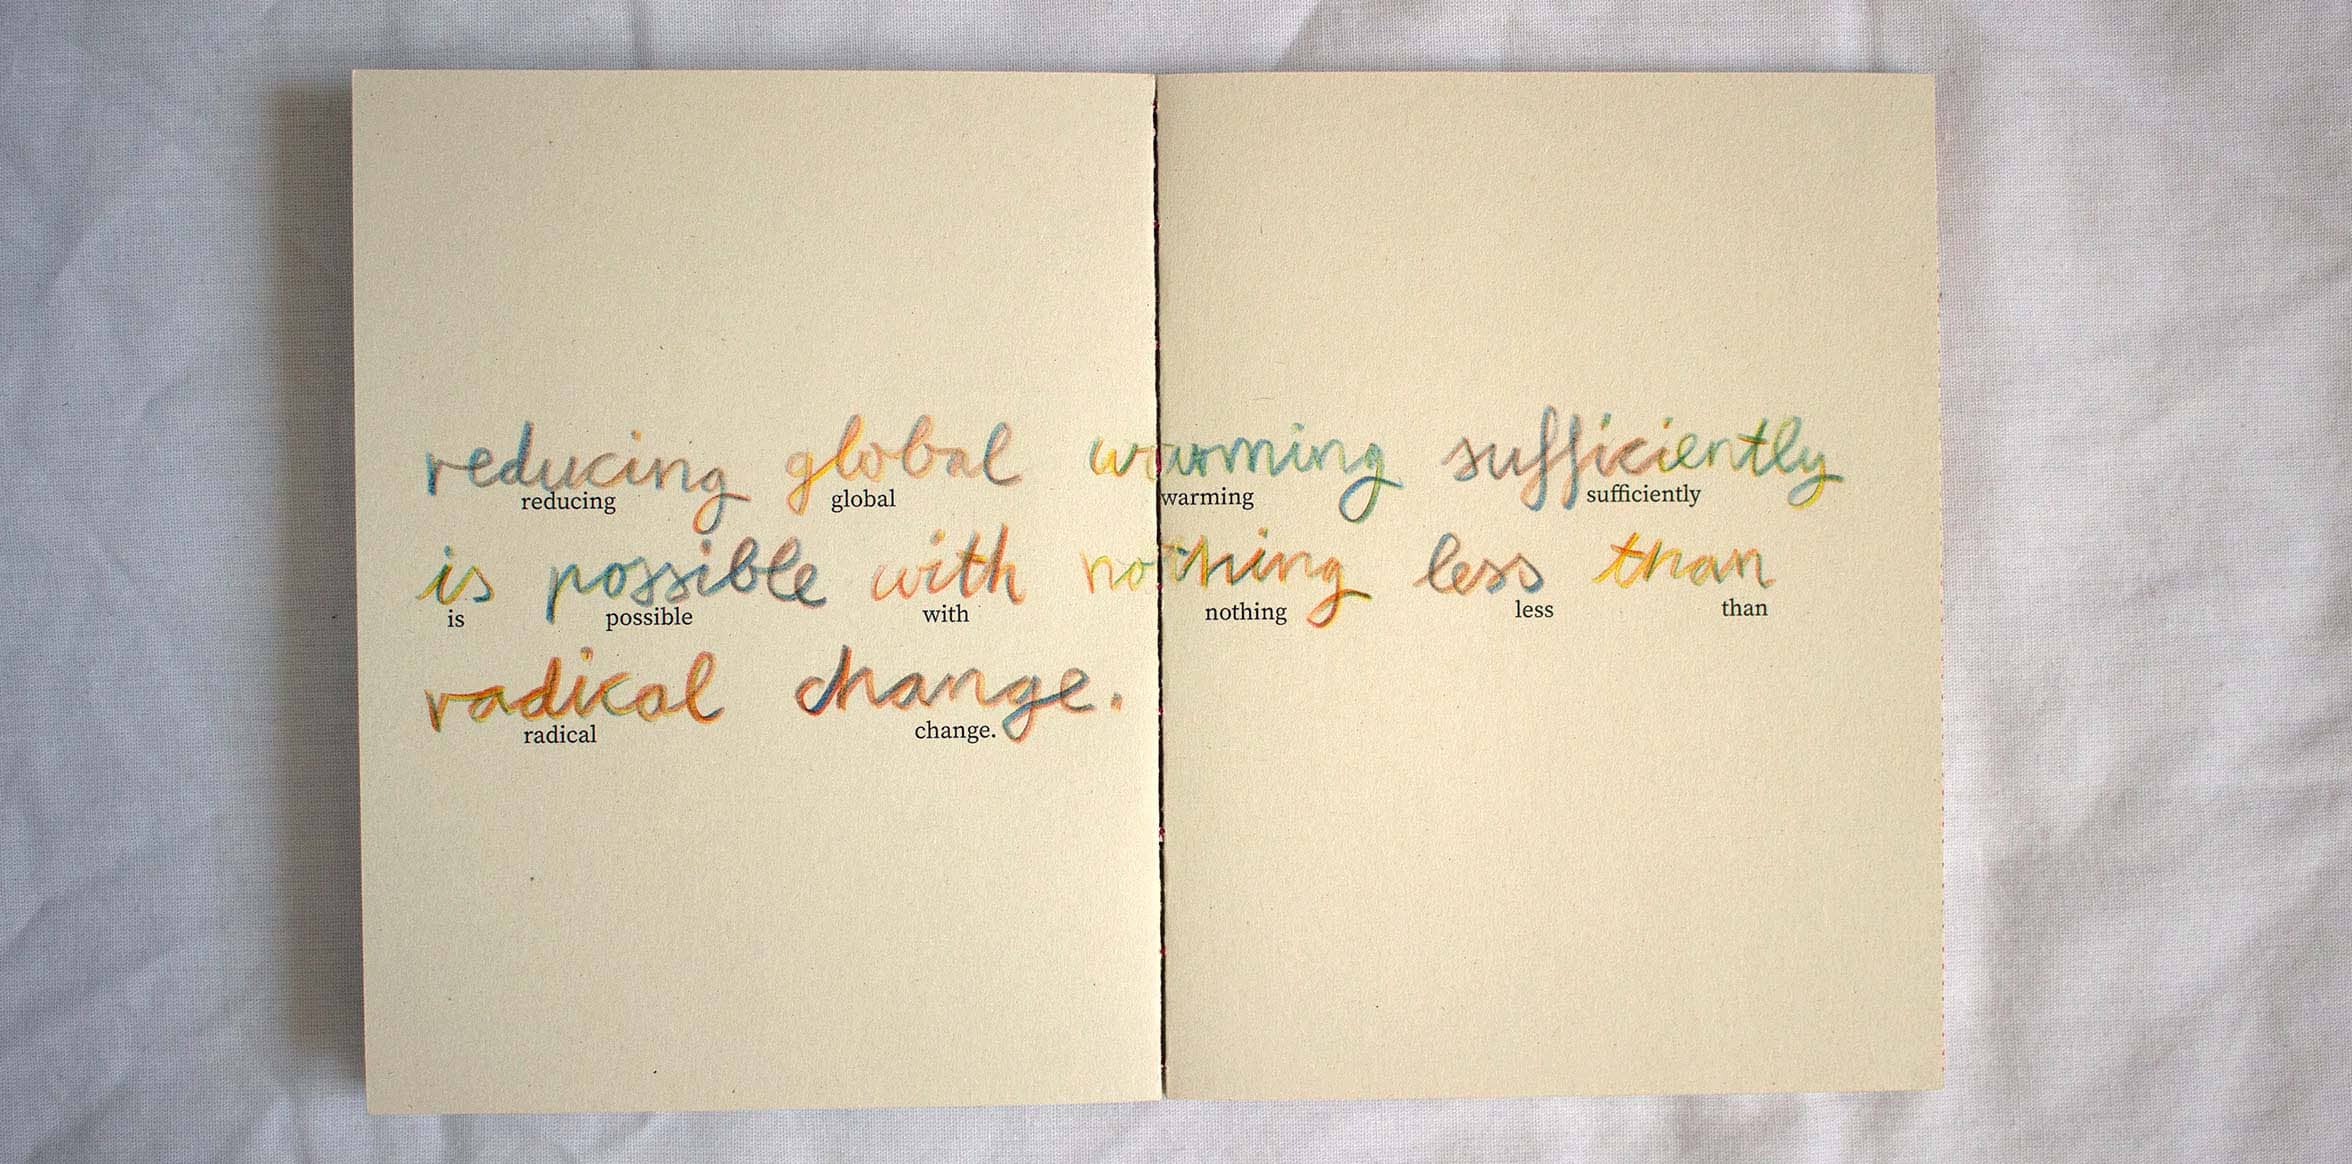 reducing global warming sufficiently
reducing global warming sufficiently
is possible with nothing less than
is possible with nothing less than
radical change.
radical change.